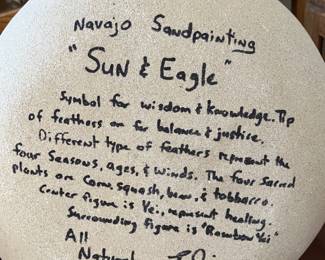 Navajo Sandpainting
"Sun & Eagle"
Symbol for wisdom & knowledge. Tip
of feathers are for balance & justice.
Different type of feathers represent the
four seasons, ages, & winds. The four sacred
plants are corn, squash, bean, & tobbacco.
Center figure is Yei, represent healing.
Surrounding figure is "Rainbow Yei"
All
Natural